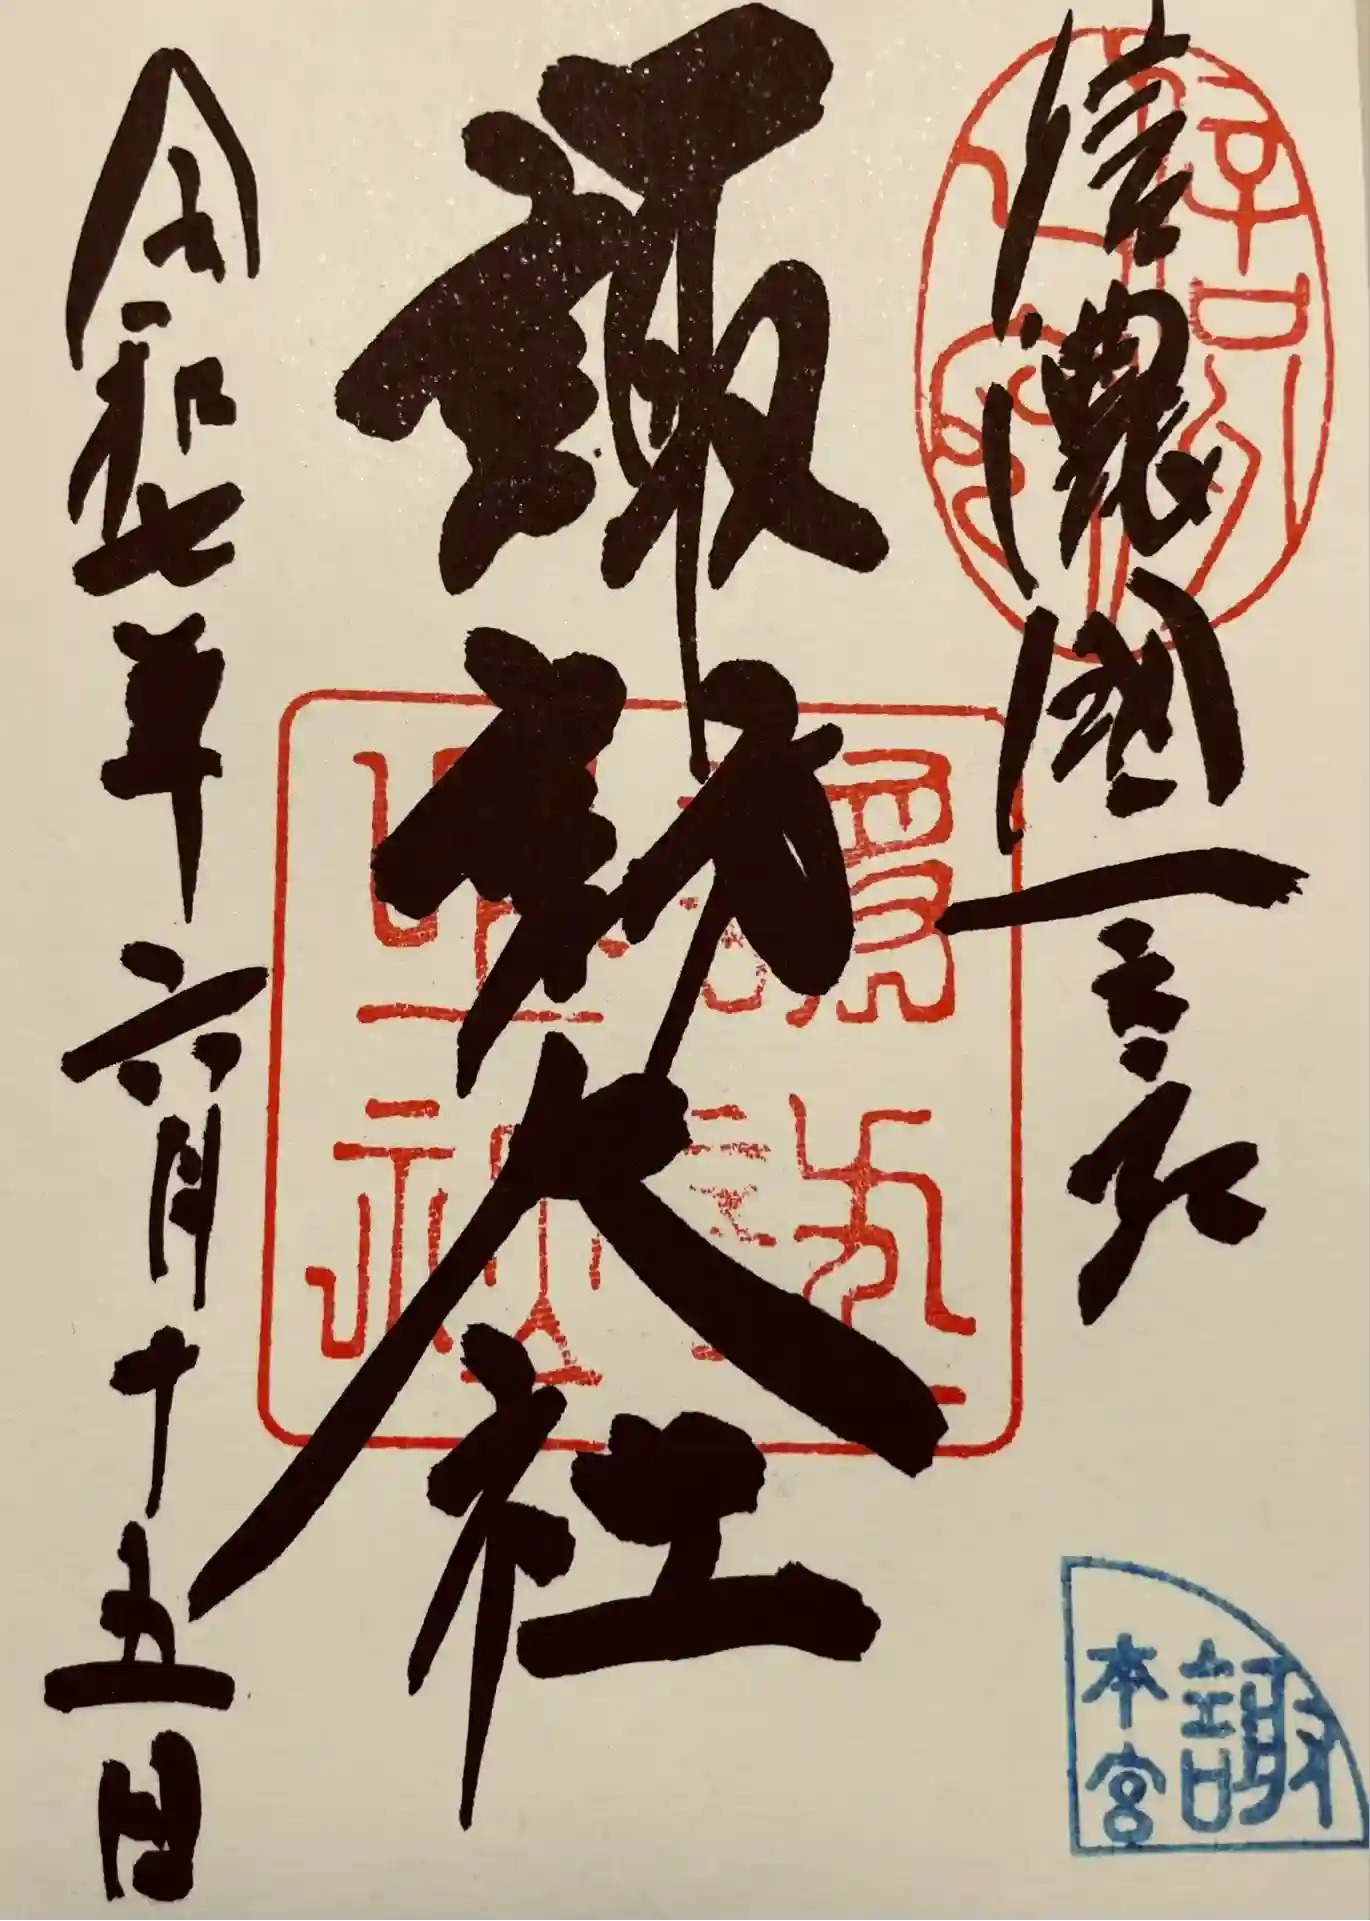 信濃國一之宮
諏訪大社
令和七年六月十五日
諏
本宮